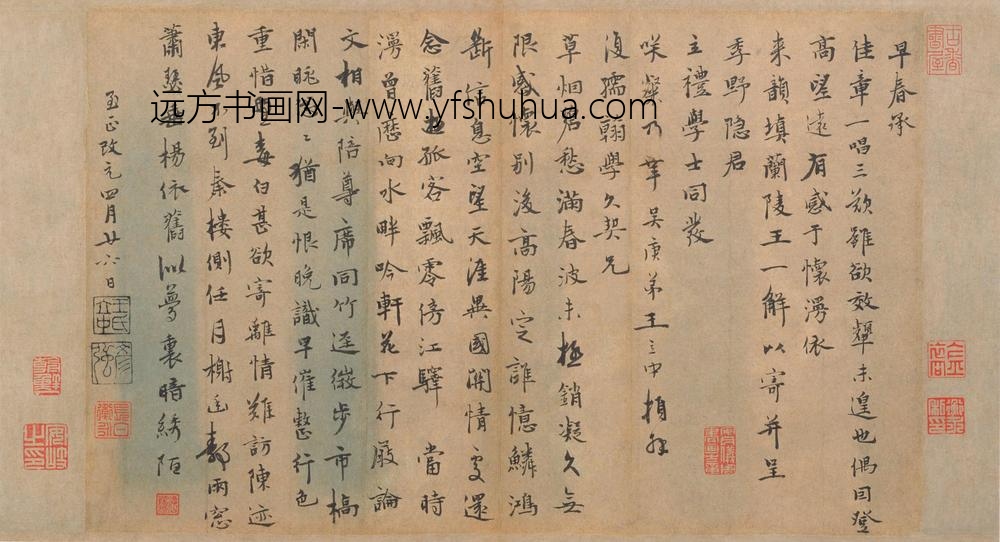 早春承
佳章一唱三歎雖欲效顰未遑也偶因登
高望遠有感于懷漫依
来韻填蘭陵王一解以寄并呈
季野隐君
主禮學士同發
咲粲乃幸 吴庚弟王立中頓拜
復孺翰學久契兄
草烟君愁滿春波未極銷凝久無
限感懷别後高陽定誰憶鱗鴻
斷信息空望天涯異國關情處還
念舊遊孤客飄零傍江驛 當時
漫曾歴向水畔吟軒花下行廚論
文相與陪尊席同竹逕微步市橋
閑眺匕猶是恨晚識早催整行色
重惜鬢毒白甚欲寄離情難訪陳迹
東風不到秦楼側任月榭遥静雨窓
蕭瑟垂楊依舊似夢裏暗綉陌
至正改元四月廿六日
远方书画网-www.yfshuhua.com